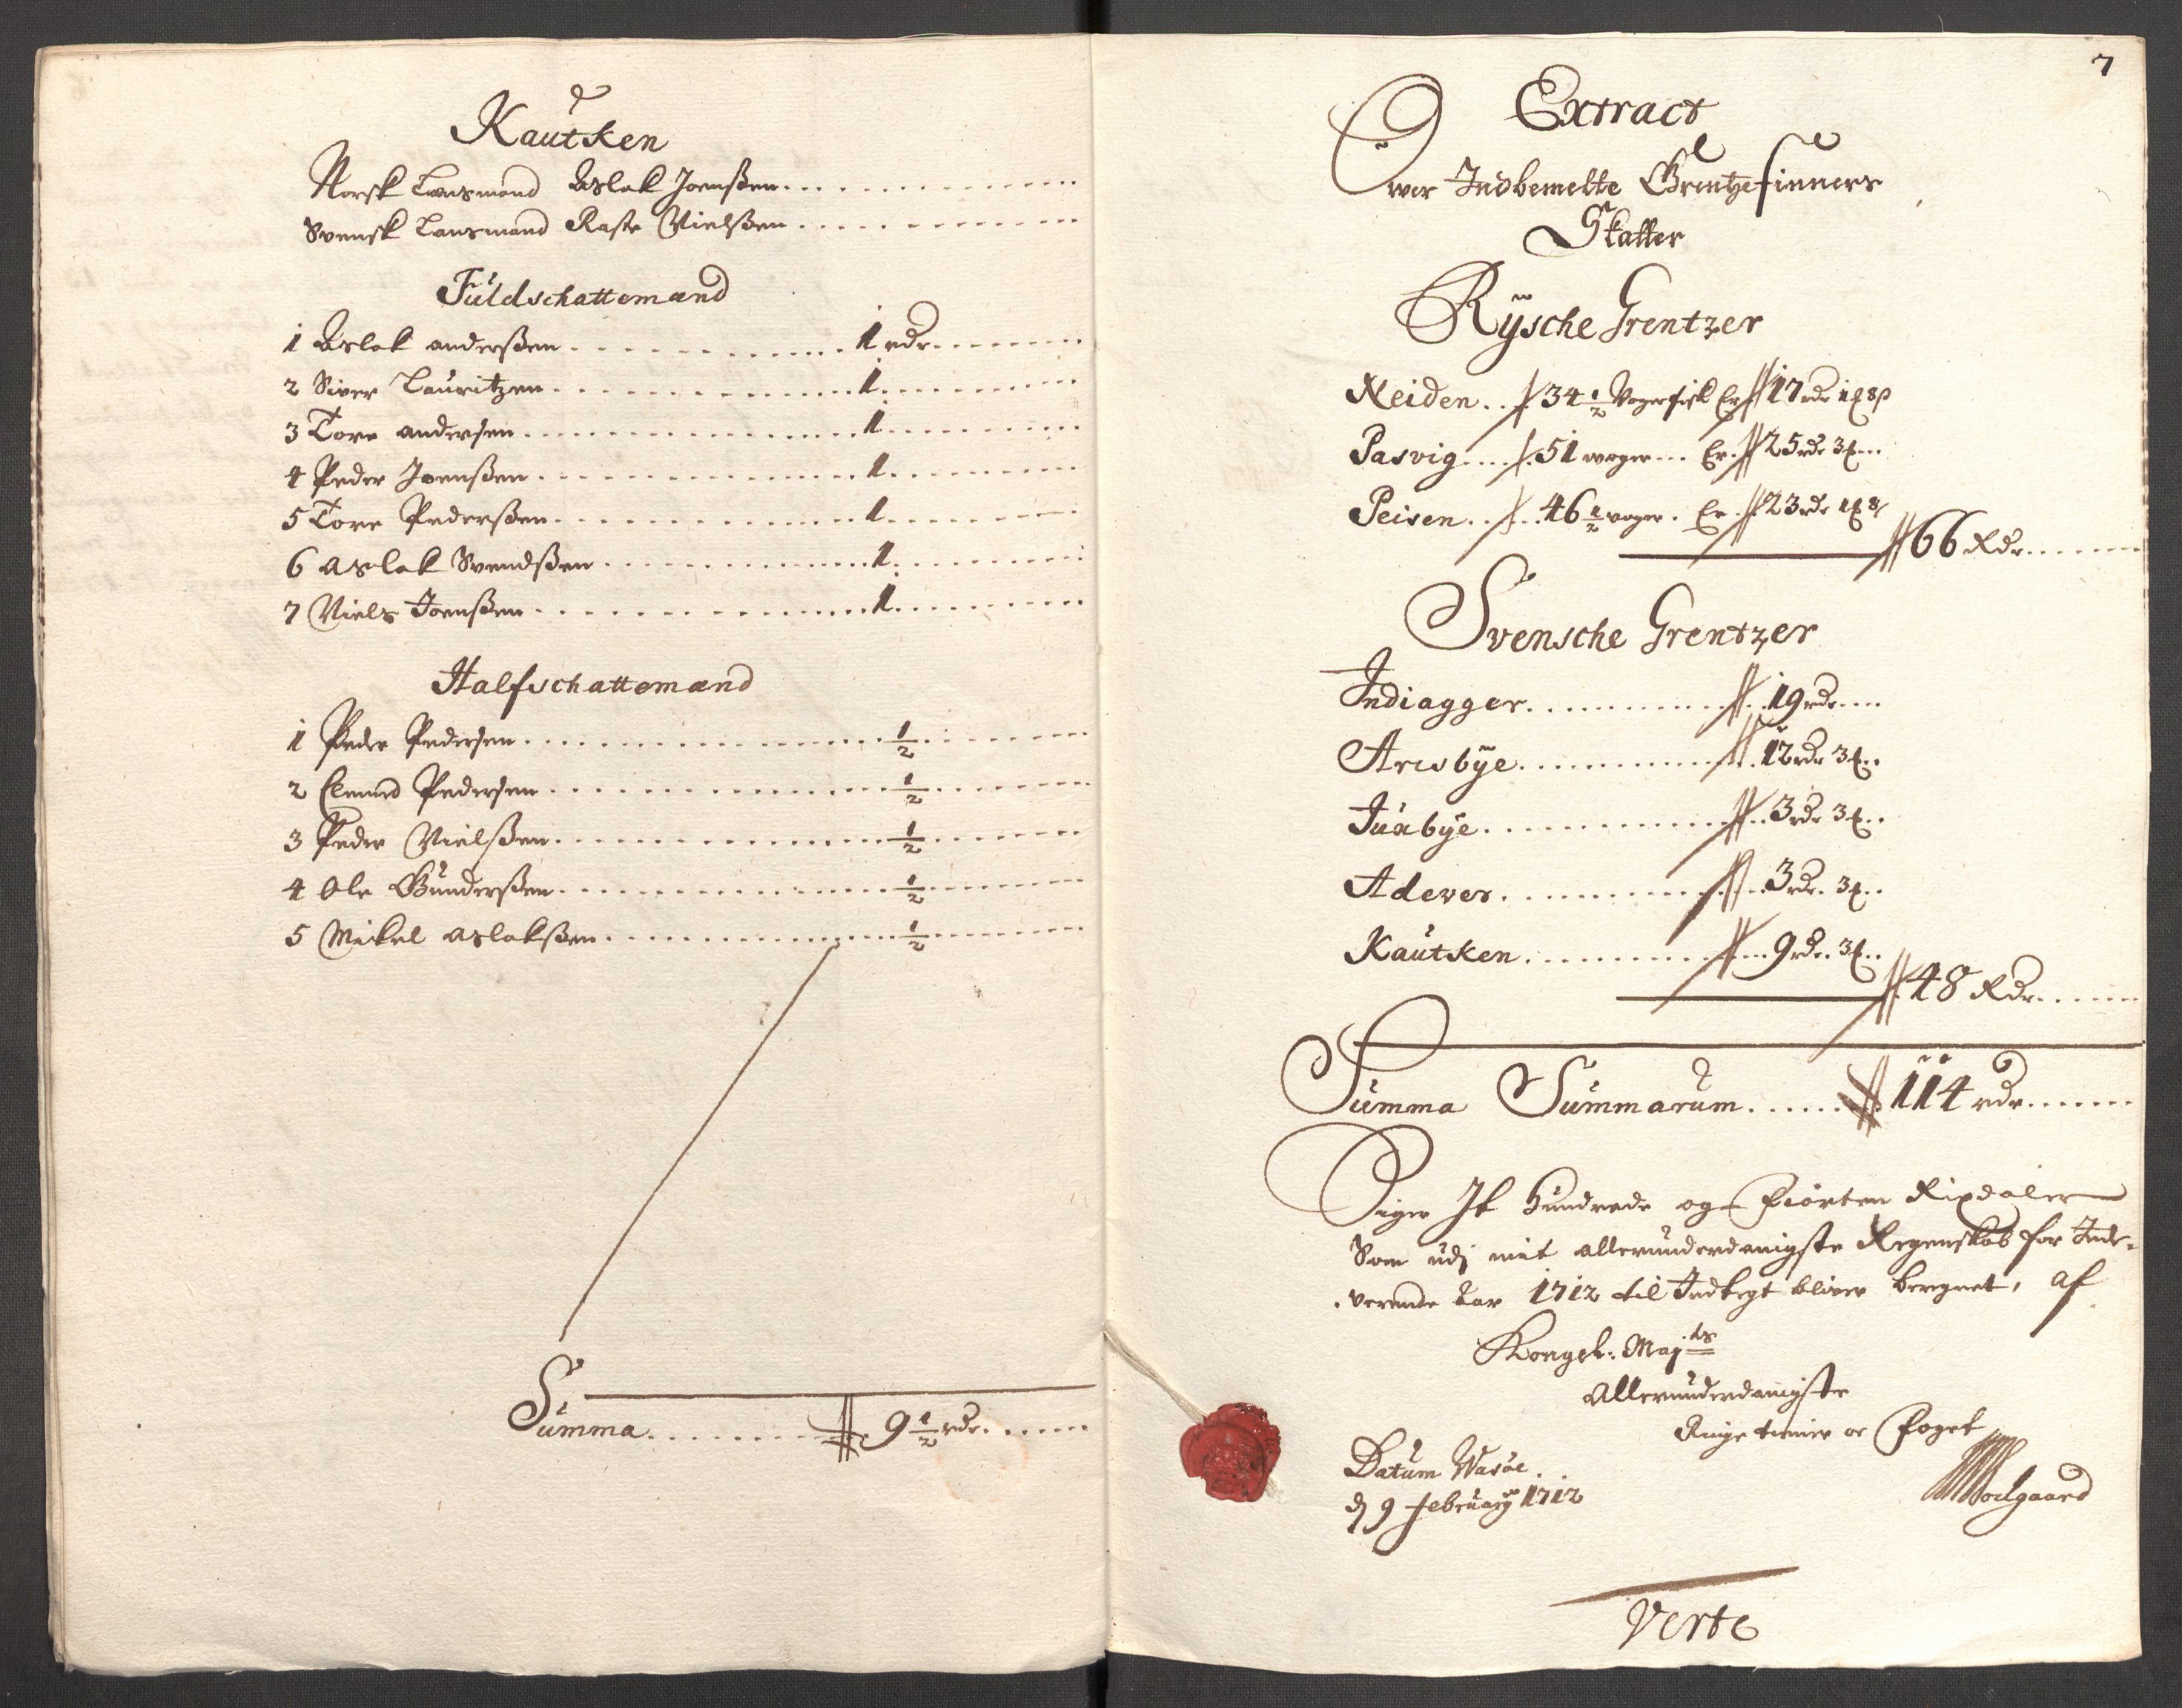 Kautken
Norsk Lensmand Aslak Joenßen
Svensk Lensmand Raste Nielßen
Fuldschattemænd
1 Aslak anderßen 1 rdr
2 Siver Lauritzen 1
3 Tore andersen 1
4 Peder Joenßen 1
5 Tore Pederßen 1
6 Aslak Svendßen 1
7 Niels Joenßen 1
Halfschattemænd
1 Peder Pedersen 1/2
2 Clemed Pedersen 1/2
3 Peder Nielßen 1/2
4 Ole Gunderßen 1/2
5 Mikel Aslakßen 1/2
Summa 9 1/2 rdr
7
Extract
Over Indbemelte Grentzefinners
Skatter
Rÿsche Grentzer
Neiden 34 1/2 Voger fisk Er 17 rdr 1 ß 8
Pasvig 51 woger Er 25 rdr 3
Peisen 46 1/2 woger Er 23 rdr 1 8
66 Rdr
Svensche Grentzer
Indiagger 19 rdr
Arisbÿe 12 rdr 3
Juabÿe 3 rdr 3
Adever 3 rdr 3
Kautken 9 rdr 3
48 Rdr
Summa Summarum 114 rdr
Siger It Hundrede og Fiorten Rixdaler
Som udj mit allerunderdanigste Regenskab for Inde-
verende Aar 1712 til Indtegt bliver beregnet, af
Kongel: Majts
Allerunderdanigste
tienner oc Foget
Datum Wasöe
d 9 februarÿ 1712
Verte